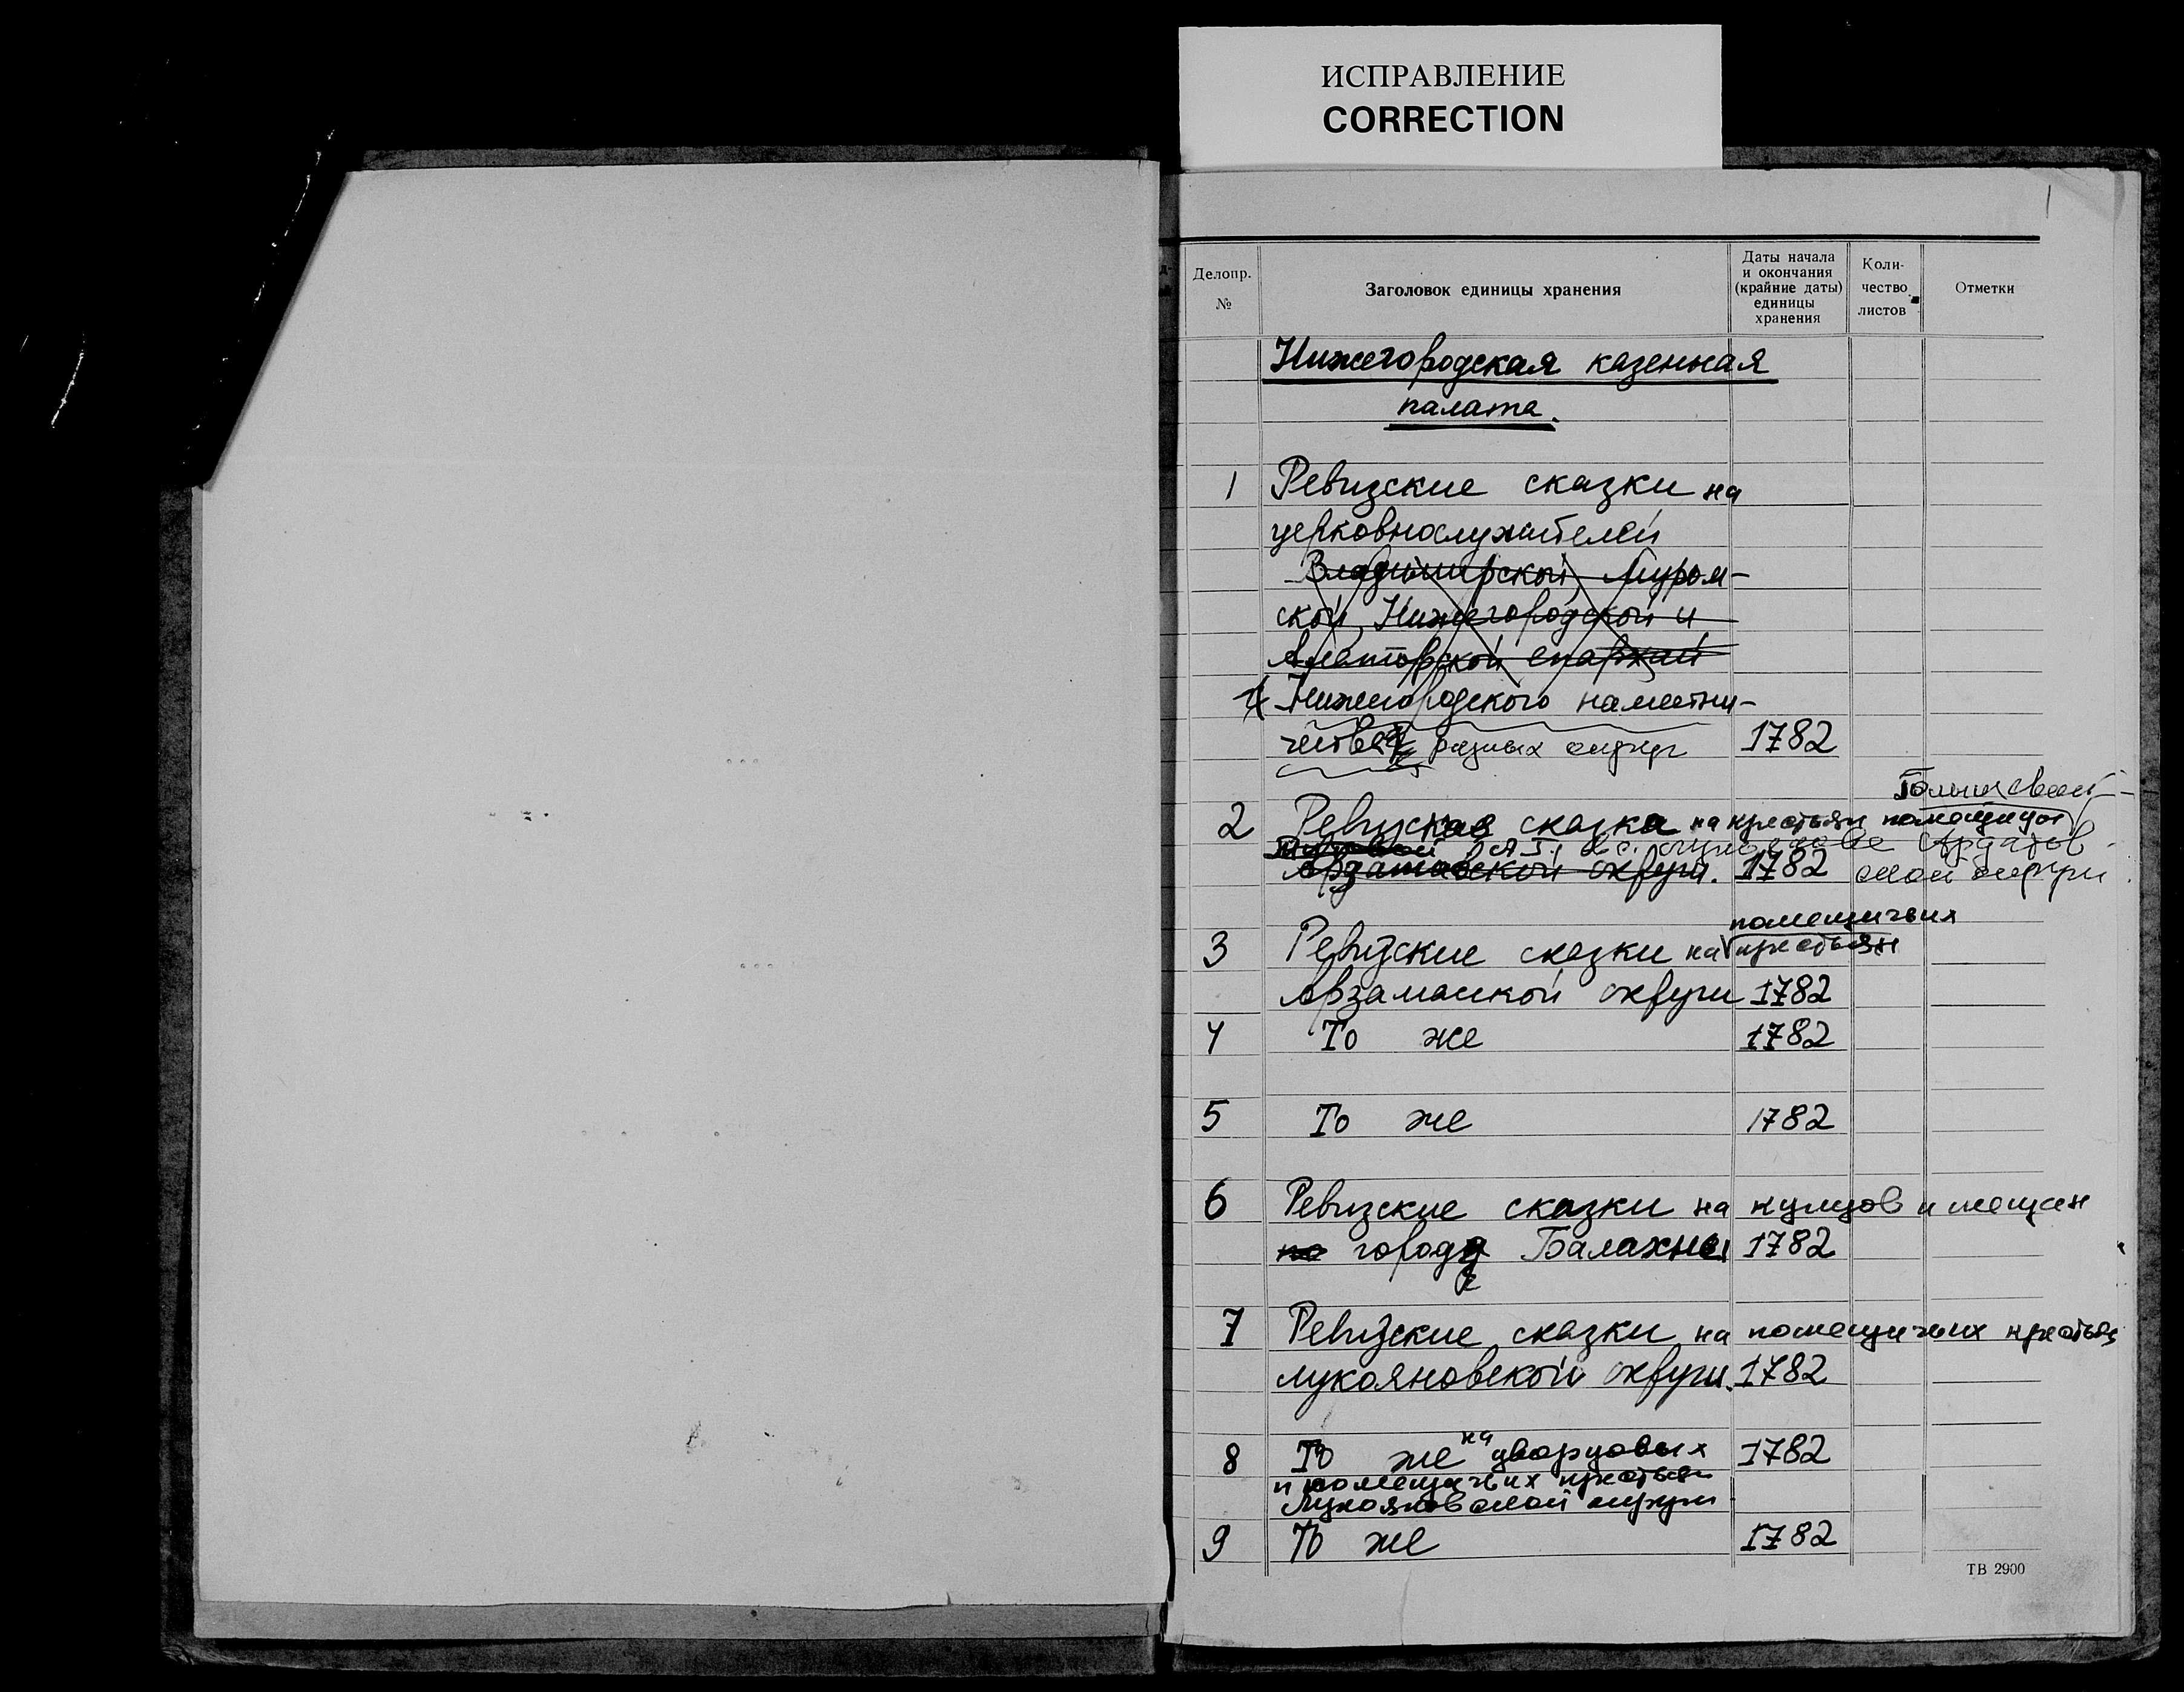 ИСПРАВЛЕНИЕ
CORRECTION
1
Делопр. №
Заголовок единицы хранения
Даты начала и окончания (крайние даты) единицы хранения
Коли-чество листов
Отметки
Нижегородская казенная
палата.
1 Ревизские сказки на
церковнослужителей
Владимирской, Муром-
ской, Нижегородской и
Алаторской епархий
Нижегородского наместни-
чества разных округ 1782
2 Ревизская сказка на крестьян помещицы
Ардатов
Арзамаской округи. 1782 ской округи
помещичьих
3 Ревизские сказки на крестьян
Арзамаской округи 1782
4 То же 1782
5 То же 1782
6 Ревизские сказки на купцов и мещан
по города Балахны 1782
7 Ревизские сказки на помещичьих крестьян
лукояновской округи. 1782
8 То же на дворцовых 1782
и помещичьих крестьян
Лукояновской округи
9 То же 1782
ТВ 2900